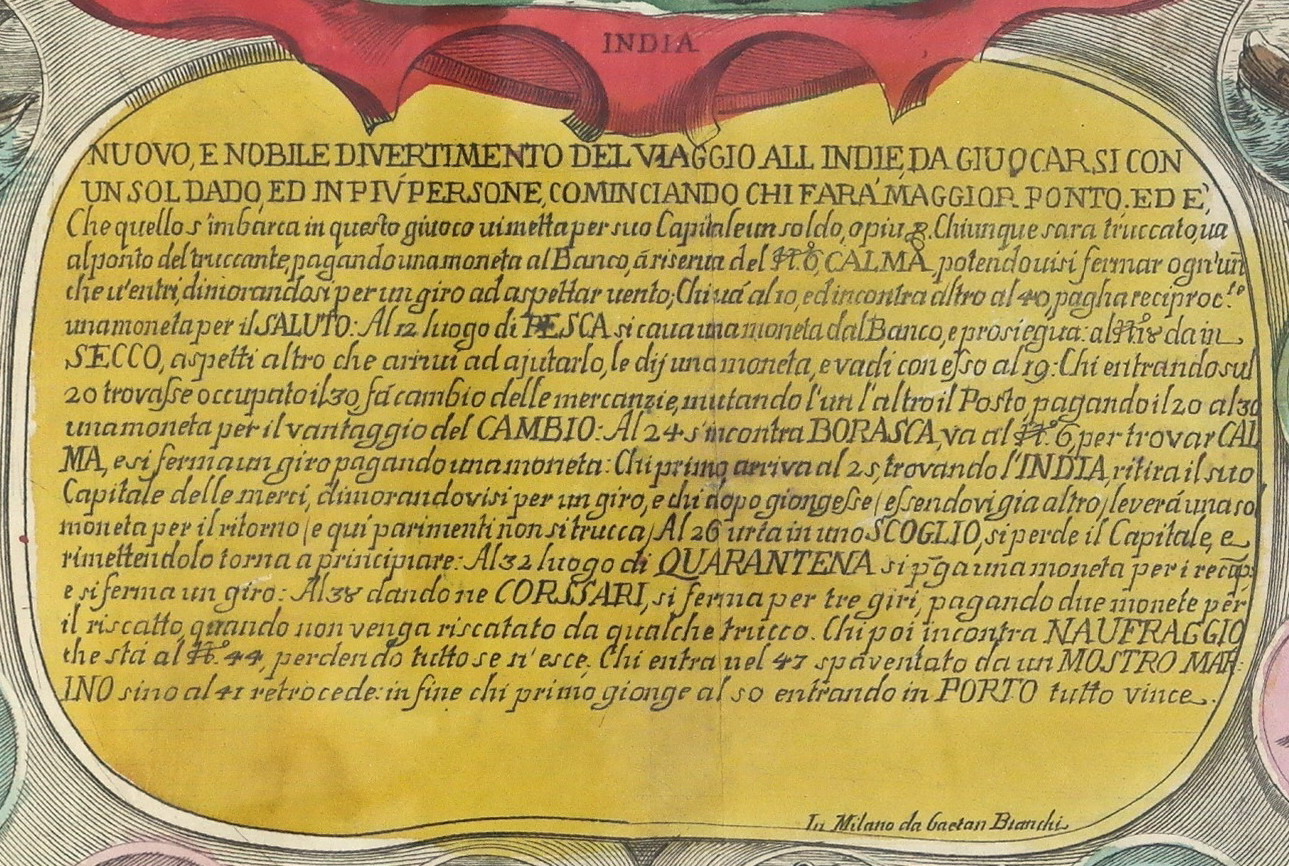 INDIA
NUOVO, E NOBILE DIVERTIMENTO DEL VIAGGIO ALL INDIE, DA GIUOCARSI CON
UN SOLDADO, ED IN PIÙ PERSONE, COMINCIANDO CHI FARA' MAGGIOR PONTO. ED E',
Che quello s'imbarca in questo giuoco ui metta per suo Capitale un soldo, o piu, &. Chiunque sara truccato, ua
al ponto del truccante, pagando una moneta al Banco, á riserua del N.º 6, CALMA, potendouisi fermar ogn'un
che u'entri, dimorandosi per un giro ad aspettar uento; Chi uá al 10, ed incontra altro al 40, pagha reciproc.te
una moneta per il SALUTO: Al 12 luogo di PESCA si caua una moneta dal Banco, e prosiegua: al N.º 18 da in
SECCO, aspetti altro che arriui ad ajutarlo, le dij una moneta, e vadi con esso al 19: Chi entrando sul
20 trovasse occupato il 30, fá cambio delle mercanzie, mutando l'un l'altro il Posto, pagando il 20 al 30
una moneta per il vantaggio del CAMBIO: Al 24 s'incontra BORASCA, va al N.º 6, per trovar CAL
MA, e si ferma un giro pagando una moneta: Chi primo arriva al 25, trovando l'INDIA, ritira il suo
Capitale delle merci, dimorandovisi per un giro, e chi dopo giongesse (essendovi gia altro) leverá una sol
moneta per il ritorno (e quí parimenti non si trucca) Al 26 urta in uno SCOGLIO, si perde il Capitale, e
rimettendolo torna a principiare: Al 32 luogo di QUARANTENA si p̃ga una moneta per i recap,
e si ferma un giro: Al 38 dando ne CORSSARI, si ferma per tre giri, pagando due monete per
il riscatto, quando non venga riscatato da qualche trucco. Chi poi incontra NAUFRAGGIO
che stá al N.º 44, perdendo tutto se n'esce. Chi entra nel 47 spaventato da un MOSTRO MAR-
INO sino al 41 retrocede: in fine chi primo gionge al 50 entrando in PORTO tutto vince.
In Milano da Gaetan Bianchi